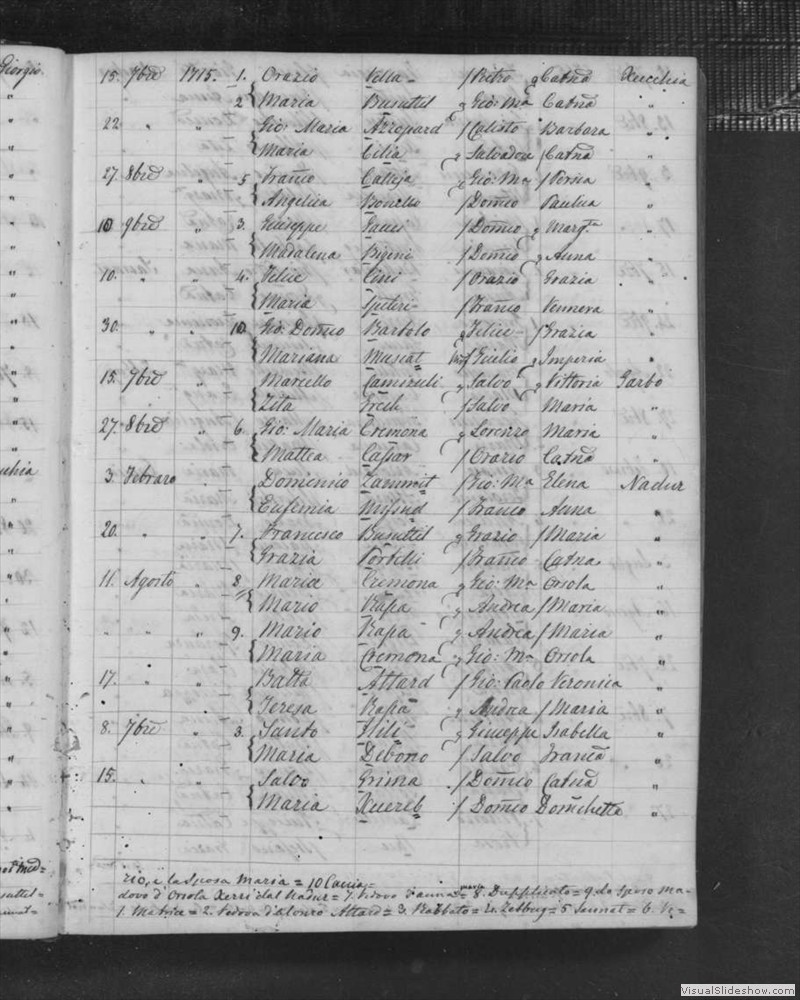 Giorgio
15. 7bre 1715. 1. Orazio Vella / Pietro q Catnā Xucchia
2 Maria Busuttil q Gio: Mā Catnā "
22. " " Gio: Maria Azzopard / Calisto Barbara "
Maria Cilia q Salvadore / Catnā "
27. 8bre " 5 Franco Calleja q Gio: Ma / Persia "
Angelica Bonello / Domco Paulica "
10 9bre " 3. Giuseppe Gauci / Domco q Margta "
Madalena Bigeni / Domco q Anna "
10. " " 4. Felice Cini / Orazio Grazia "
Maria Spiteri / Franco Vennera "
30. " " 10 Gio: Domco Bartolo q Felice / Grazia "
Mariana Muscat / Giulio q Imperia "
15. 7bre " Marcello Camenzuli q Salvo q Vittoria Garbo
Zita Grech / Salvo Maria "
27. 8bre " 6. Gio: Maria Cremona q Lorenzo Maria "
Mattea Caspar / Orazio Catnā "
3. Febraro . Domenico Zammit / Gio: Ma Elena Nadur
Eufemia Mifsud / Franco Anna "
20. " " 7. Francesco Busuttil q Grazio / Maria "
Grazia Portelli / Franco Catna "
11. Agosto " 8 Maria Cremona q Gio: Ma Orsola "
Mario Rapa q Andrea / Maria "
" " " 9. Mario Rapa q Andrea / Maria "
Maria Cremona q Gio: Ma Orsola "
17. " " Batta Attard / Gio: Paolo Veronica "
Teresa Rapa q Andrea / Maria "
8. 7bre " 3. Santo Hili q Giuseppe Isabella "
Maria Debono / Salvo Franca "
15. " " Salvo Grima / Domco Catnā "
Maria Xuereb / Domco Domchetta "
rio, e la Sposa Maria = 10
dovo d' Orsola Xerri dal Nadur = 7. Vedovo = 8. Dupplicato = 9 lo Sposo Ma-
1. Matrice = 2. Vedova d' Alonzo Attard = 3. Rabbato = 4. Zebbug = 5 Sannat = 6. Ve=
VisualSlideshow.com